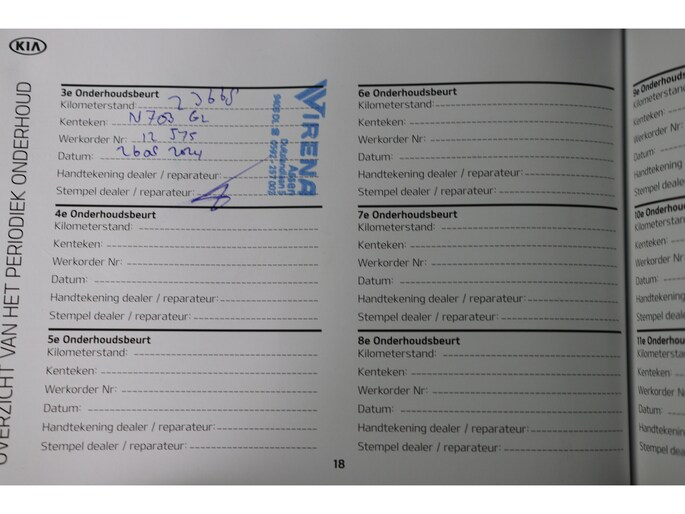 KIA
OVERZICHT VAN HET PERIODIEK ONDERHOUD
3e Onderhoudsbeurt
Kilometerstand: 23668
Kenteken: N 703 GL
Werkorder Nr: 12 575
Datum: 2605 2024
Handtekening dealer / reparateur:
Stempel dealer / reparateur:
WIRENA
Assen
0592 - 257 003
9400 DL
4e Onderhoudsbeurt
Kilometerstand:
Kenteken:
Werkorder Nr:
Datum:
Handtekening dealer / reparateur:
Stempel dealer / reparateur:
5e Onderhoudsbeurt
Kilometerstand:
Kenteken:
Werkorder Nr:
Datum:
Handtekening dealer / reparateur:
Stempel dealer / reparateur:
6e Onderhoudsbeurt
Kilometerstand:
Kenteken:
Werkorder Nr:
Datum:
Handtekening dealer / reparateur:
Stempel dealer / reparateur:
7e Onderhoudsbeurt
Kilometerstand:
Kenteken:
Werkorder Nr:
Datum:
Handtekening dealer / reparateur:
Stempel dealer / reparateur:
8e Onderhoudsbeurt
Kilometerstand:
Kenteken:
Werkorder Nr:
Datum:
Handtekening dealer / reparateur:
Stempel dealer / reparateur:
18
9e Onderhoudsbeurt
Kilometerstand:
Kenteken:
Werkorder Nr:
Datum:
Handtekening
Stempel dealer
10e Onderhou
Kilometerstand
Kenteken:
Werkorder Nr:
Datum:
Handtekening
Stempel dealer
11e Onderhou
Kilometersta
Kenteken:
Werkorder N
Datum:
Handtekening
Stempel deale